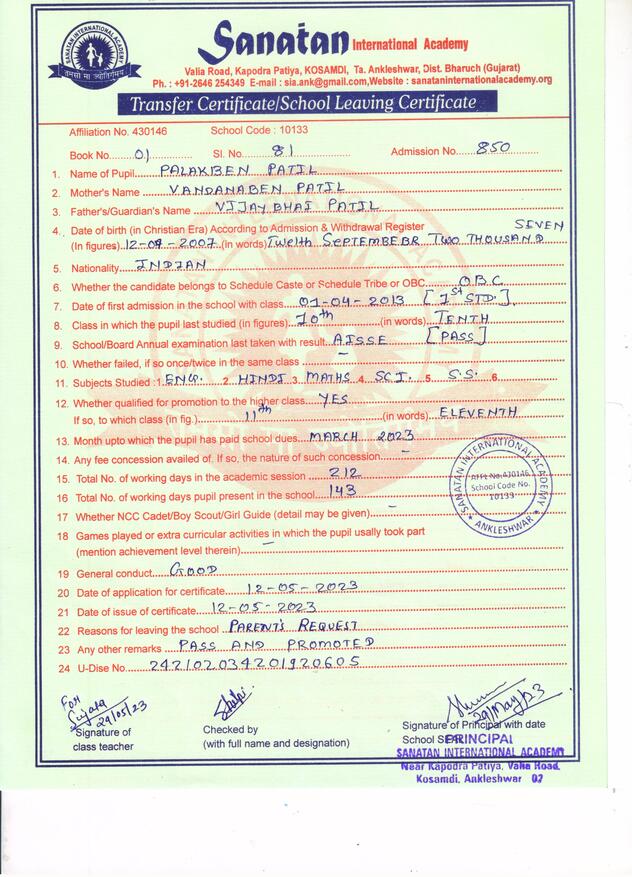 SANATAN INTERNATIONAL ACADEMY
तमसो मा ज्योतिर्गमय
Sanatan International Academy
Valia Road, Kapodra Patiya, KOSAMDI, Ta. Ankleshwar, Dist. Bharuch (Gujarat)
Ph. : +91-2646 254349 E-mail : sia.ank@gmail.com,Website : sanataninternationalacademy.org
Transfer Certificate/School Leaving Certificate
Affiliation No. 430146 School Code : 10133
Book No. 01 Sl. No. 81 Admission No. 850
1. Name of Pupil PALAKBEN PATIL
2. Mother's Name VANDANABEN PATIL
3. Father's/Guardian's Name VIJAYBHAI PATIL
4. Date of birth (in Christian Era) According to Admission & Withdrawal Register SEVEN
(In figures) 12-09-2007 (in words) Twelth SEPTEMBEBR TWO THOUSAND
5. Nationality INDIAN
6. Whether the candidate belongs to Schedule Caste or Schedule Tribe or OBC O.B.C
7. Date of first admission in the school with class 01-04-2013 [1ST STD.]
8. Class in which the pupil last studied (in figures) 10th (in words) TENTH
9. School/Board Annual examination last taken with result AISSE [PASS]
10. Whether failed, if so once/twice in the same class –
11. Subjects Studied :1. ENG. 2. HINDI 3. MATHS 4. SCI. 5. S.S. 6.
12. Whether qualified for promotion to the higher class YES
If so, to which class (in fig.) 11th (in words) ELEVENTH
13. Month upto which the pupil has paid school dues MARCH 2023
14. Any fee concession availed of. If so, the nature of such concession –
15. Total No. of working days in the academic session 212
16 Total No. of working days pupil present in the school 143
17 Whether NCC Cadet/Boy Scout/Girl Guide (detail may be given) –
18 Games played or extra curricular activities in which the pupil usally took part
(mention achievement level therein) –
SANATAN INTERNATIONAL ACADEMY
Affi. No.430146
School Code No.
10133
* ANKLESHWAR *
19 General conduct GOOD
20 Date of application for certificate 12-05-2023
21 Date of issue of certificate 12-05-2023
22 Reasons for leaving the school PARENT'S REQUEST
23 Any other remarks PASS AND PROMOTED
24 U-Dise No. 242102034201920605
For
Sujata
29/05/23
29/May/23
Signature of
class teacher
Checked by
(with full name and designation)
Signature of Principal with date
School SEAL
PRINCIPAL
SANATAN INTERNATIONAL ACADEMY
Near Kapodra Patiya, Valia Road,
Kosamdi, Ankleshwar 02